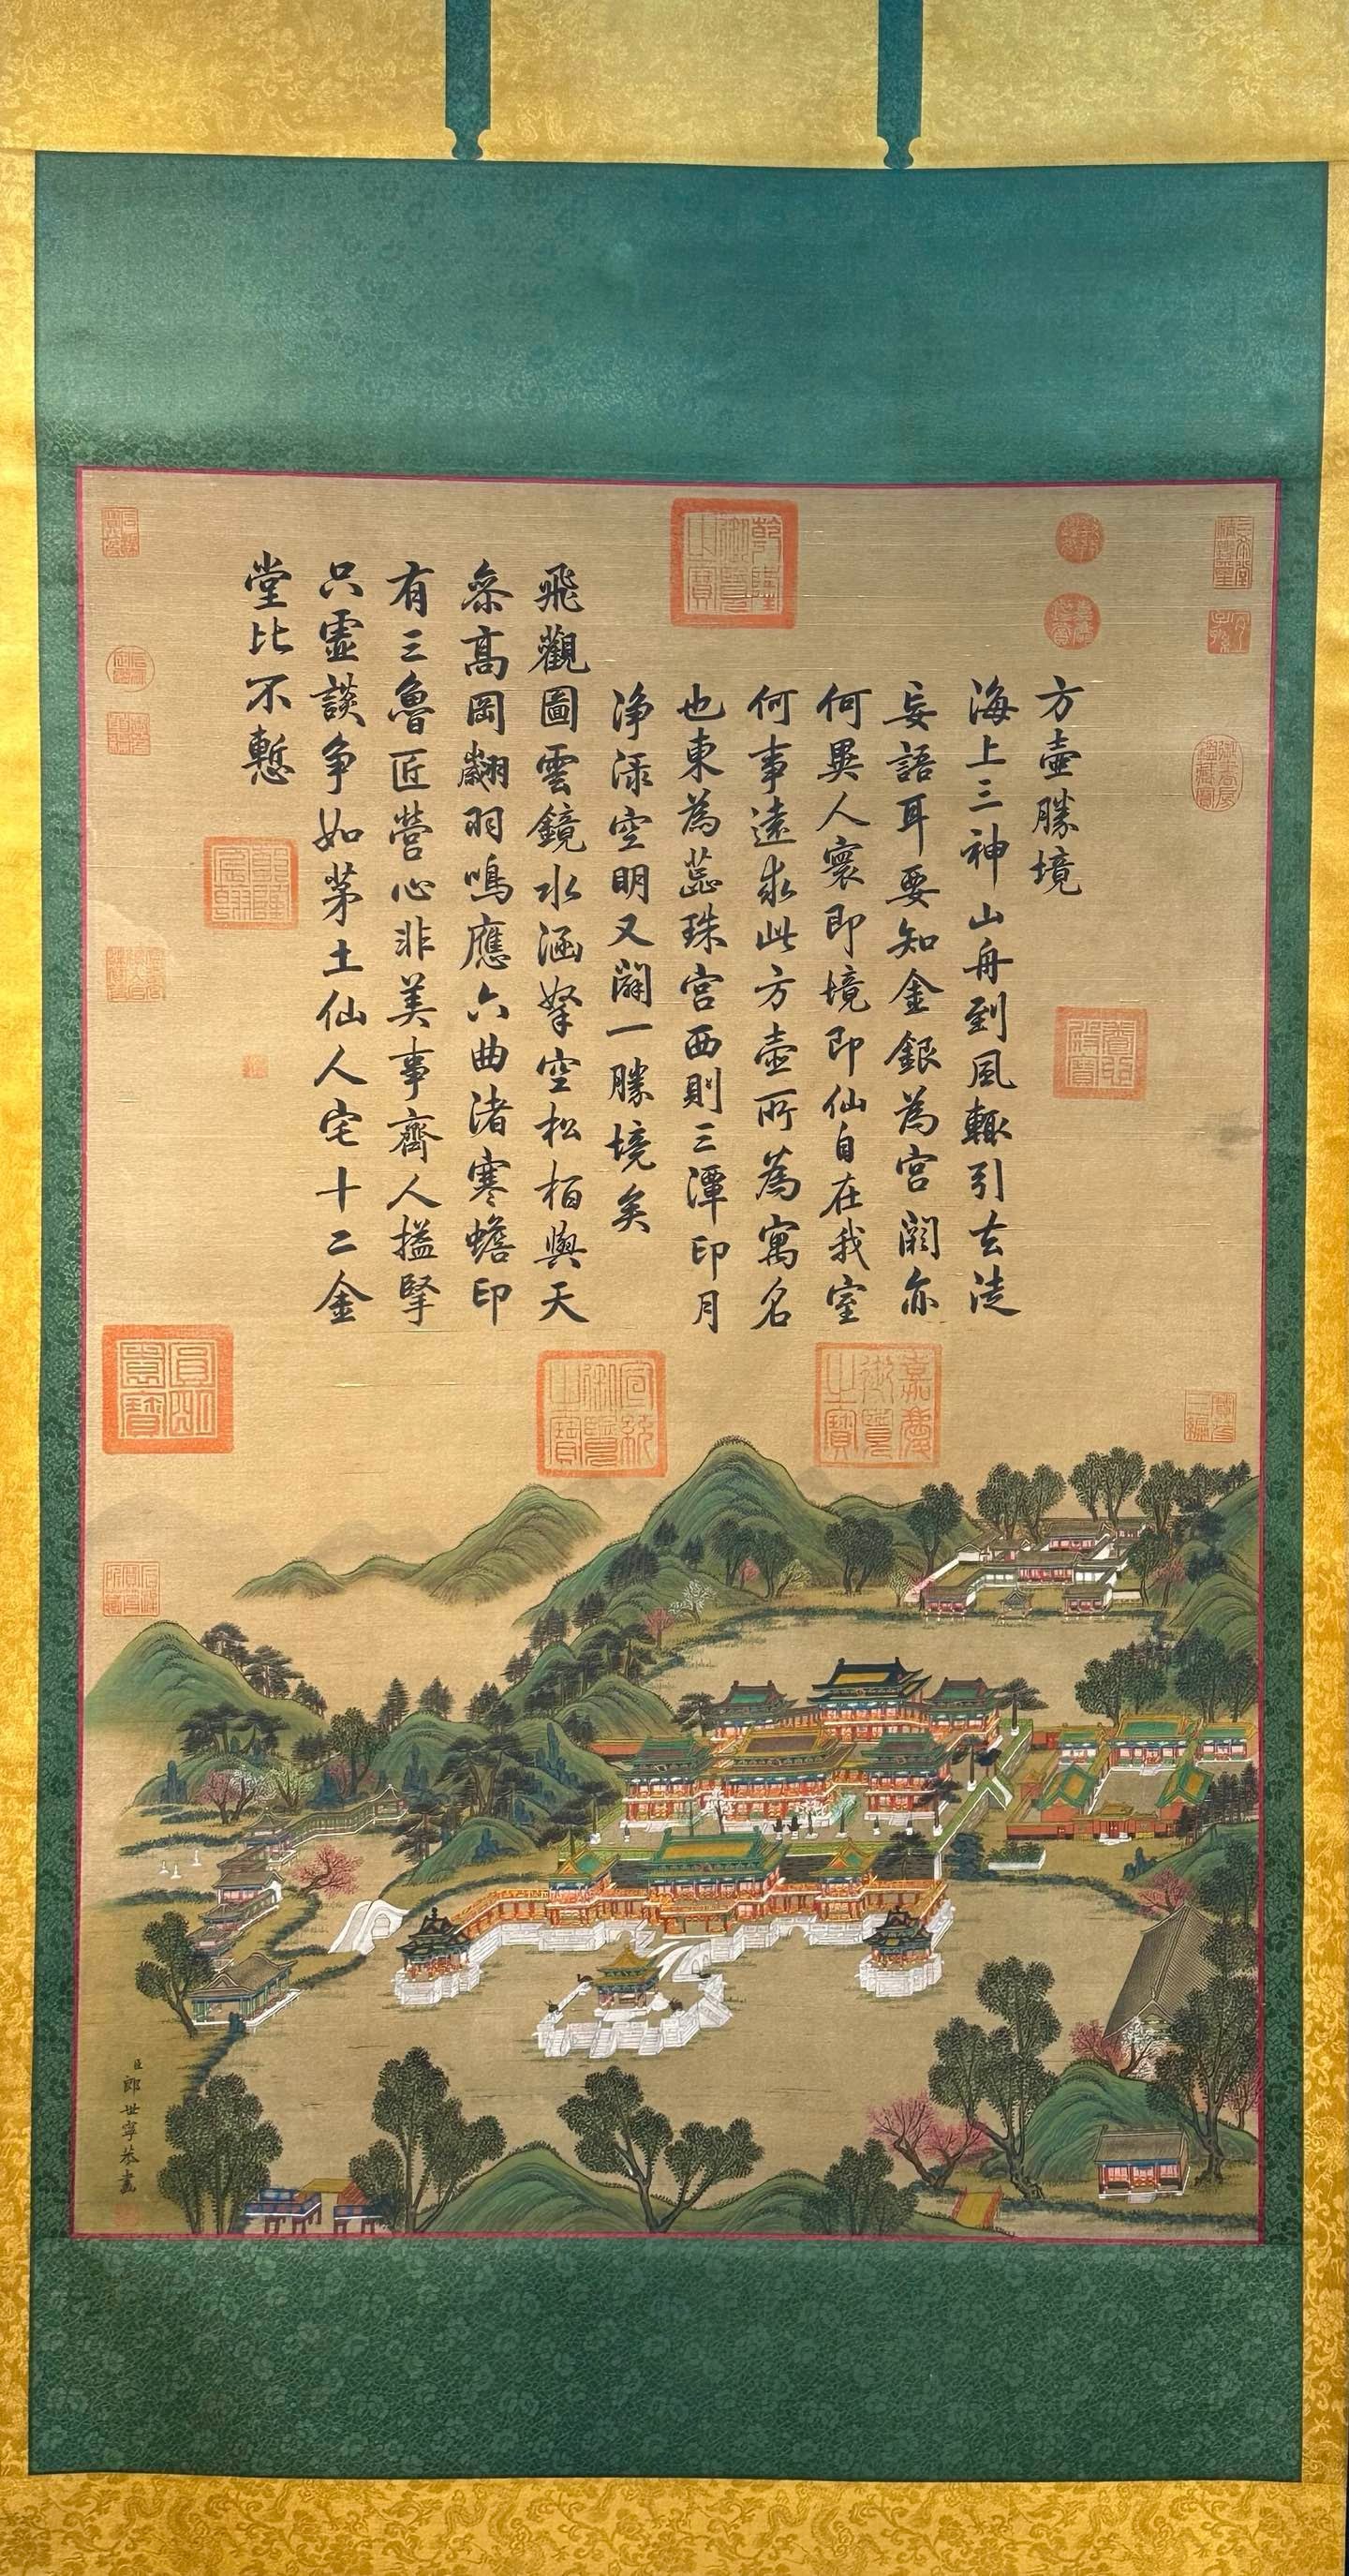 方壺勝境
海上三神山舟到風輙引去徒
妄語耳要知金銀為宮闕亦
何異人寰即境即仙自在我室
何事遠求此方壺所為寓名
也東為蕊珠宮西則三潭印月
淨渌空明又闢一勝境矣
飛觀圖雲鏡水涵拏空松柏與天
叅高岡翽羽鳴應六曲渚寒蟾印
有三魯匠營心非美事齊人搤掔
只虛談爭如茅土仙人宅十二金
堂比不慙
乾隆御覽之寶
嘉慶御覽之寶
宣統御覽之寶
乾隆宸翰
臣郎世寧恭畫